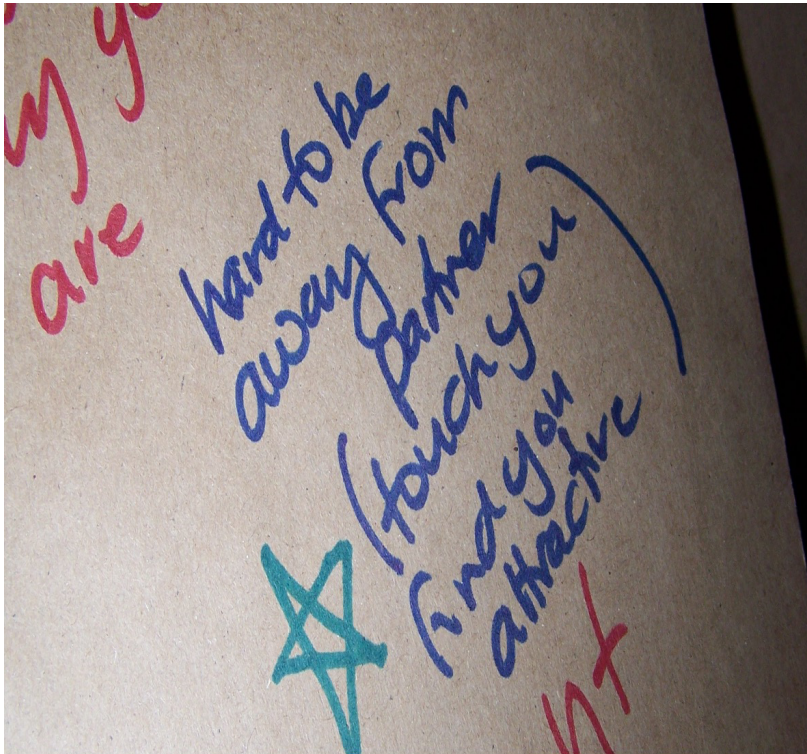 are
hard to be
away from
partner
(touch you)
find you
attractive